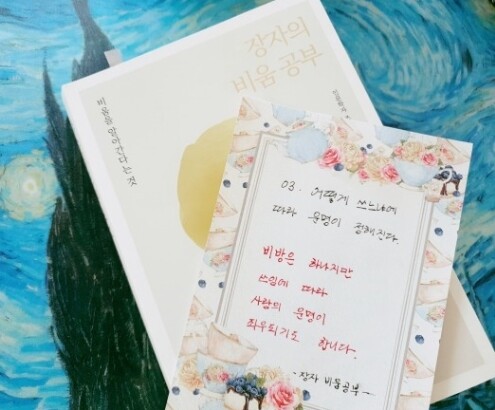 장자의
비움 공부
비움을 알아간다는 것
03. 어떻게 쓰느냐에
따라 운명이 정해진다.
비방은 하나지만
쓰임에 따라
사람의 운명이
좌우되기도 합니다.
-장자 비움공부-